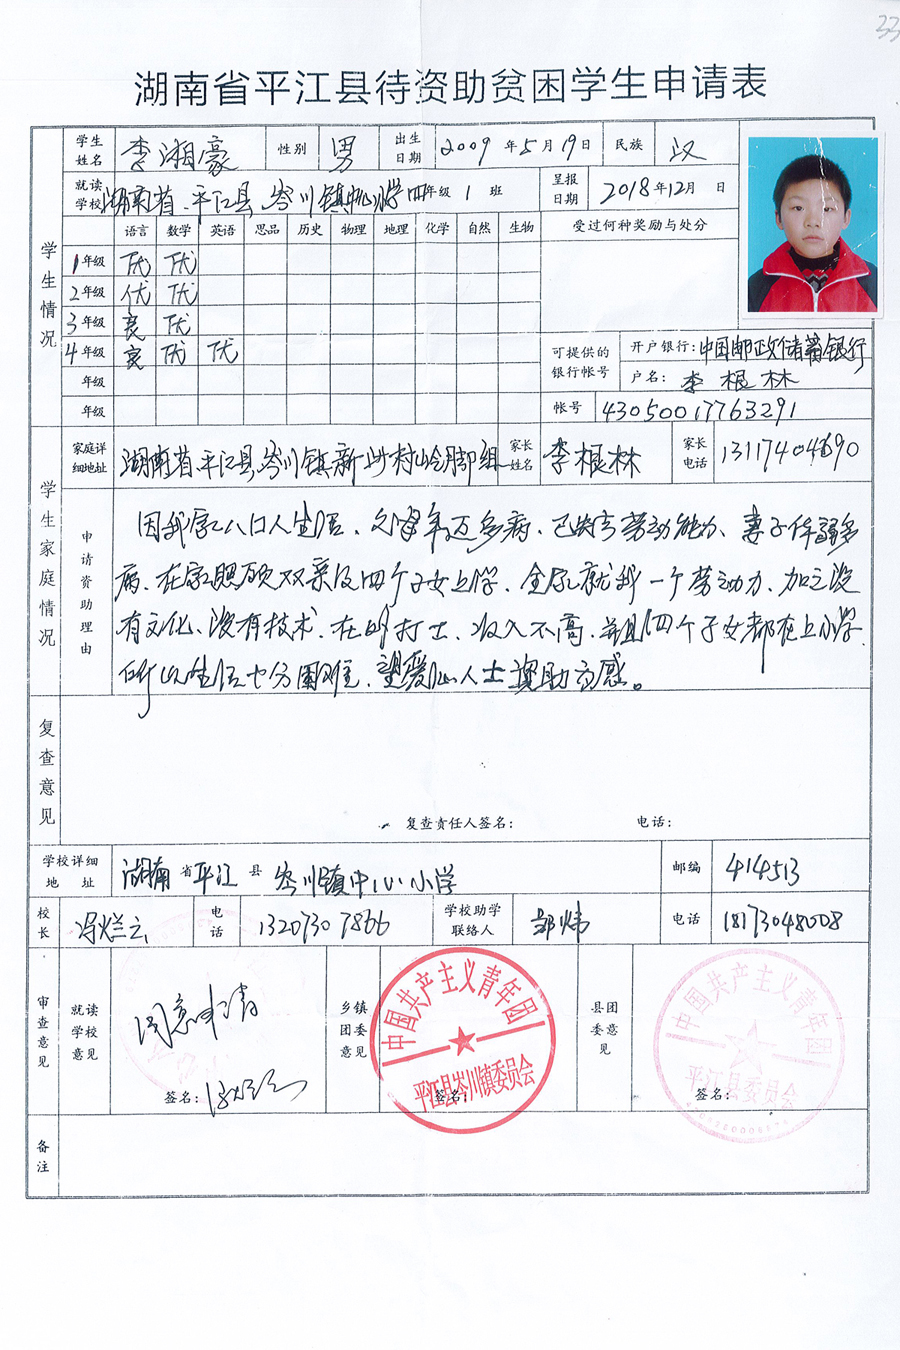 33
湖南省平江县待资助贫困学生申请表
学生姓名 李湘豪 性别 男 出生日期 2009年5月19日 民族 汉
就读学校 湖南省平江县岑川镇 小学四年级1班 呈报日期 2018年12月 日
学生情况
语言 数学 英语 思品 历史 物理 地理 化学 自然 生物 受过何种奖励与处分
1年级 优 优
2年级 优 优
3年级 良 优
4年级 良 优 优
年级
年级
可提供的银行帐号
开户银行:中国邮政储蓄银行
户名:李根林
帐号 43050017763291
学生家庭情况
家庭详细地址 湖南省平江县岑川镇新 村 组 家长姓名 李根林 家长电话 13117404690
申请资助理由
因我家八口人生活、父母年迈多病、已失去劳动能力、妻子体弱多
病、在家照顾双亲及四个子女上学、全家就我一个劳动力、加之没
有文化、没有技术、在外打工、收入不高、并且四个子女都在上小学
所以生活十分困难、望爱心人士资助为感。
复查意见
复查责任人签名: 电话:
学校详细地址 湖南省平江县岑川镇中心小学 邮编 414513
校长 冯烂云 电话 13207307866 学校助学联络人 邹炜 电话 18173048008
审查意见
就读学校意见 同意申请 签名:
乡镇团委意见 签名:
中国共产主义青年团
平江县岑川镇委员会
县团委意见 签名:
中国共产主义青年团
平江县委员会
备注